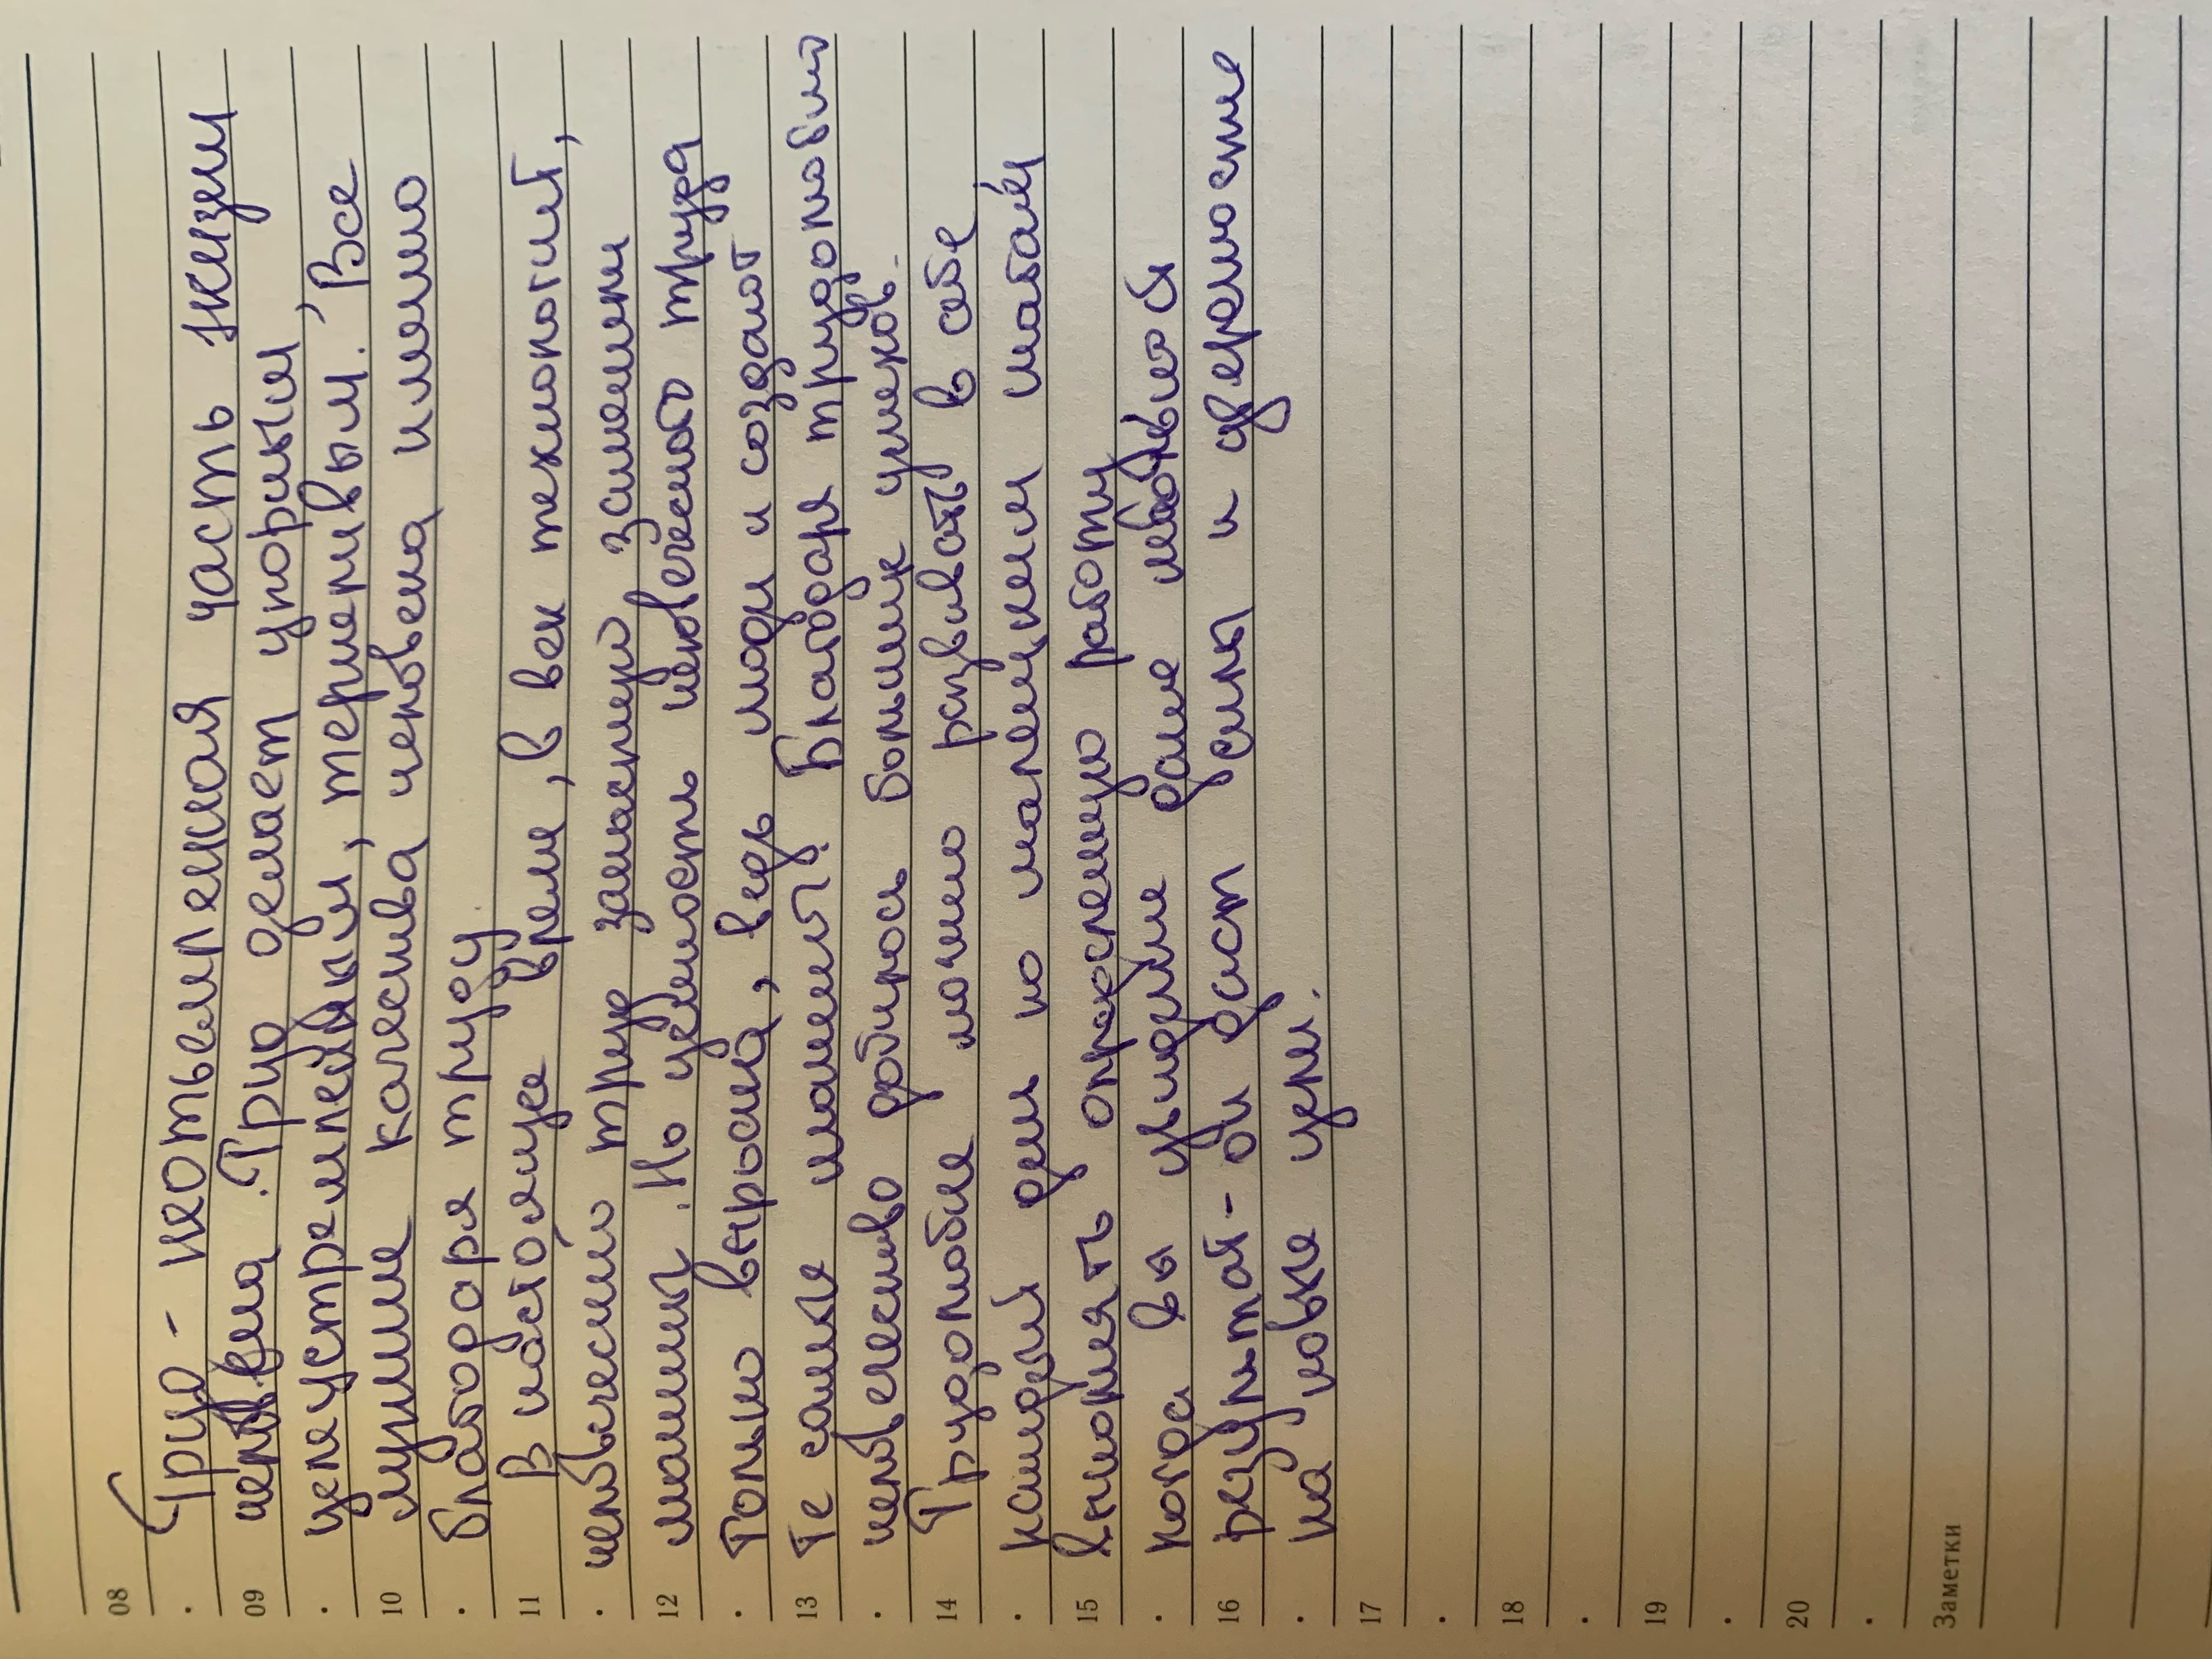 08
Труд - неотъемлемая часть жизни
09
человека. Труд делает упорным,
целеустремлённым, терпеливым. Все
10
лучшие качества человека именно
благодаря труду
11
В настоящее время, в век технологий,
человеческий труд зачастую заменили
12
машины. Но ценность человеческого труда
только выросла, ведь люди и создают
13
те самые машины. Благодаря трудолюбию
человечество добилось больших успехов.
14
Трудолюбие можно развивать в себе
каждый день по маленьким шагам
15
выполнять определенную работу
когда вы увидите даже небольшой
16
результат - он даст силы и удовольствие
на новые цели.
17
18
19
20
Заметки